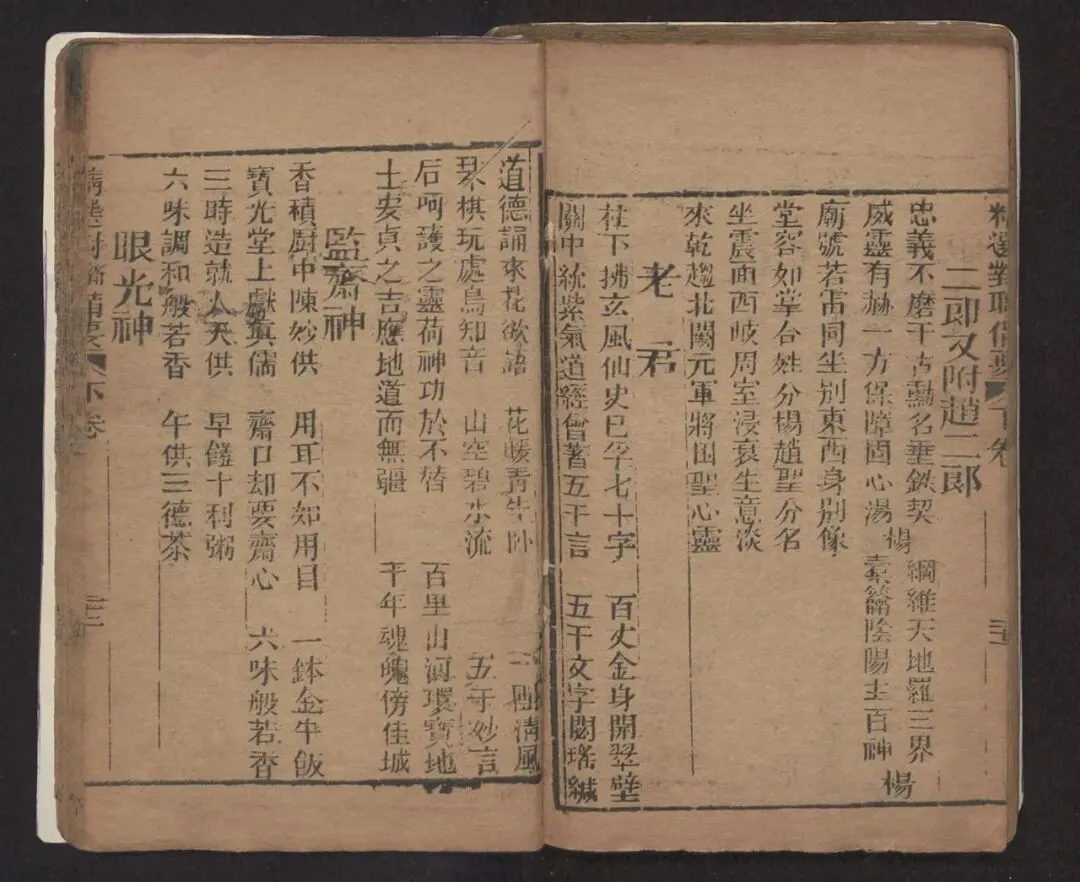 精選對聯備要 下卷
二郎文附趙二郎
忠義不磨千古勳名垂鉄契 楊 綱維天地羅三界
威靈有赫一方保障固心湯 橐籥陰陽主百神 楊
廟號若雷同坐別東西身別像
堂容如掌合姓分楊趙聖分名
坐震面西岐周室浸衰生意淡
來乾趨北闕元軍將困聖心靈
老君
柱下拂玄風仙史已孚七十字 百丈金身開翠壁
關中統紫氣道經曾著五千言 五千文字閟瑤緘
道德誦來花欲語 花暖青牛卧 一 清風
琹棋玩處鳥知音 山空碧水流 五千妙言
后呵護之靈荷神功於不替 百里山河環寶地
士安貞之吉應地道而無疆 千年魂魄傍佳城
監齋神
香積厨中陳妙供 用耳不如用目 一鉢金牛飯
寶光堂上獻真儒 齋口却要齋心 六味般若香
三時造就人天供 早饍十利粥
六味調和般若香 午供三德茶
眼光神
精選對聯備要 下卷